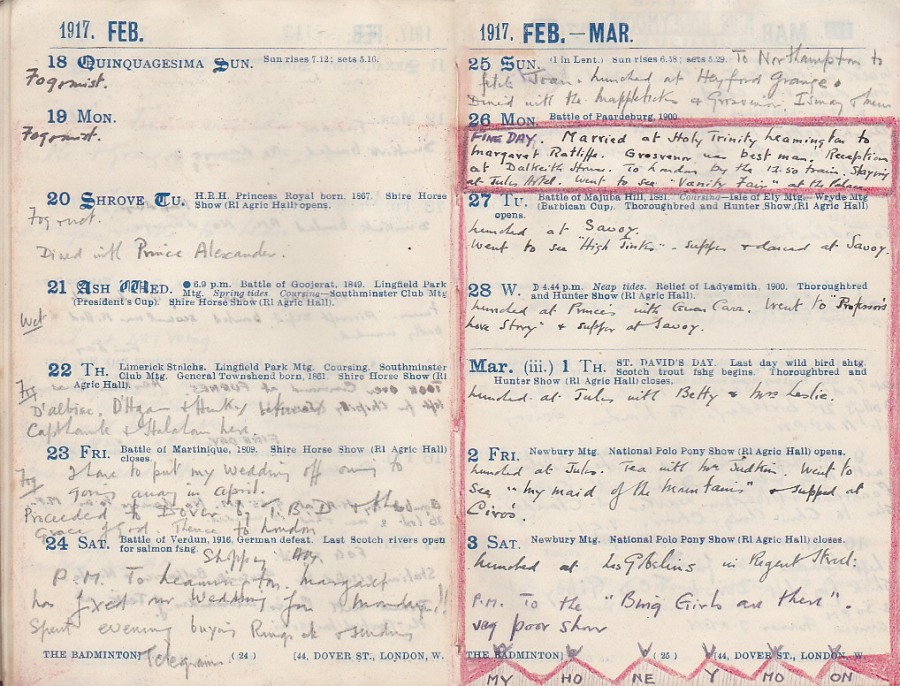 1917. FEB.
18 QUINQUAGESIMA SUN. Sun rises 7.12; sets 5.16.
Fog & mist.
19 MON.
Fog & mist.
20 SHROVE TU. H.R.H. Princess Royal born, 1867. Shire Horse
Show (Rl Agric Hall) opens.
Fog & wet.
Dined with Prince Alexander.
21 ASH WED. ● 6.9 p.m. Battle of Goojerat, 1849. Lingfield Park
Mtg. Spring tides. Coursing—Southminster Club Mtg
(President's Cup) Shire Horse Show (Rl Agric Hall).
Wet
22 TH. Limerick Stplchs. Lingfield Park Mtg. Coursing. Southminster
Club Mtg. General Townshend born, 1861. Shire Horse Show (Rl
Agric Hall).
Fog
D'albiac, D'Hagan & Huskey
here.
23 FRI. Battle of Martinique, 1909. Shire Horse Show (Rl Agric Hall)
closes.
Fog
I have to put my wedding off owing to
going away in April.
Proceeded to Dover by T.B.D & the
Grace of God. Thence to London
24 SAT. Battle of Verdun, 1916, German defeat. Last Scotch rivers open
for salmon fsng.
Shopping
P.M. To Leamington. Margaret
has fixed our wedding for Monday!!
Spent evening buying Rings etc & sending
Telegrams.
THE BADMINTON] (24) [44, DOVER ST., LONDON, W.
1917. FEB.—MAR.
25 SUN. (1 in Lent). Sun rises 6.58; sets 5.29.
To Northampton to
fetch Joan. Lunched at Heyford Grange.
Dined with the Mappletofts & Grosvenor, Ismay & them
26 MON. Battle of Paardeburg, 1900.
FINE DAY. Married at Holy Trinity Leamington to
Margaret Ratliffe. Grosvenor was best man. Reception
at Dalkeith House. To London by the 12.50 train. Staying
at Jules Hotel. Went to see "Vanity Fair" at the Palace
27 TU. Battle of Majuba Hill, 1881. Coursing—Isle of Ely Mtg. Wryde Mtg
(Barbican Cup). Thoroughbred and Hunter Show (Rl Agric Hall)
opens.
Lunched at Savoy.
Went to see "High Jinks" - supper & danced at Savoy.
28 W. ☽ 4.44 p.m. Neap tides. Relief of Ladysmith, 1900. Thoroughbred
and Hunter Show (Rl Agric Hall).
Lunched at Princes with Carr. Went to "Professor's
Love Story" & supper at Savoy.
Mar. (iii.) 1 TH. ST. DAVID'S DAY. Last day wild bird shtg.
Scotch trout fshg begins. Thoroughbred and
Hunter Show (Rl Agric Hall) closes.
Lunched at Jules with Betty & Mrs Leslie.
2 FRI. Newbury Mtg. National Polo Pony Show (Rl Agric Hall) opens.
Lunched at Jules. Tea with Mrs Judkin. Went to
see "My maid of the Mountains" & supped at
Ciro's.
3 SAT. Newbury Mtg. National Polo Pony Show (Rl Agric Hall) closes.
Lunched at Les Gobelins in Regent Street.
P.M. To the "Bing Girls are there".
very poor show
THE BADMINTON] (25) [44, DOVER ST., LONDON, W.
MY HO NE Y MO ON